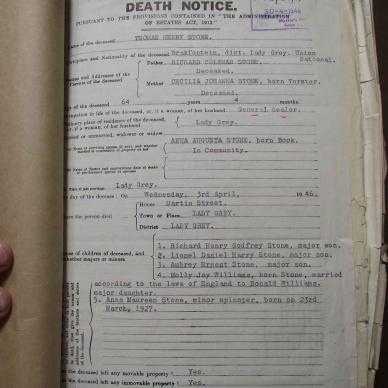 DEATH NOTICE.
PURSUANT TO THE PROVISIONS CONTAINED IN "THE ADMINISTRATION
OF ESTATES ACT, 1913."
30-4-1946
Name of the deceased THOMAS HENRY STONE.
Birthplace and Nationality of the deceased Brakfontein, dist. Lady Grey. Union National.
Names and Addresses of the Parents of the deceased
Father RICHARD COLEMAN STONE.
Deceased.
Mother CECILIA JOHANNA STONE, born Vorster.
Deceased.
Age of the deceased 64 years 4 months
Occupation in life of the deceased, or, if a woman, of her husband General dealer.
Ordinary place of residence of the deceased, or, if a woman, of her husband Lady Grey.
Married or unmarried, widower or widow
ANNA AUGUSTA STONE, born Bock.
In Community.
Place of last marriage Lady Grey.
The day of the decease: On Wednesday, 3rd April, 1946.
Where the person died
House Martin Street.
Town or Place LADY GREY.
District LADY GREY.
Names of children of deceased, and whether majors or minors
1. Richard Henry Godfrey Stone, major son.
2. Lionel Daniel Harry Stone, major son.
3. Aubrey Ernest Stone, major son.
4. Molly Joy Williams, born Stone, married
according to the laws of England to Donald Williams,
major daughter.
5. Anna Maureen Stone, minor spinster, born on 23rd
March, 1927.
the deceased left any movable property? Yes.
the deceased left any immovable property? Yes.